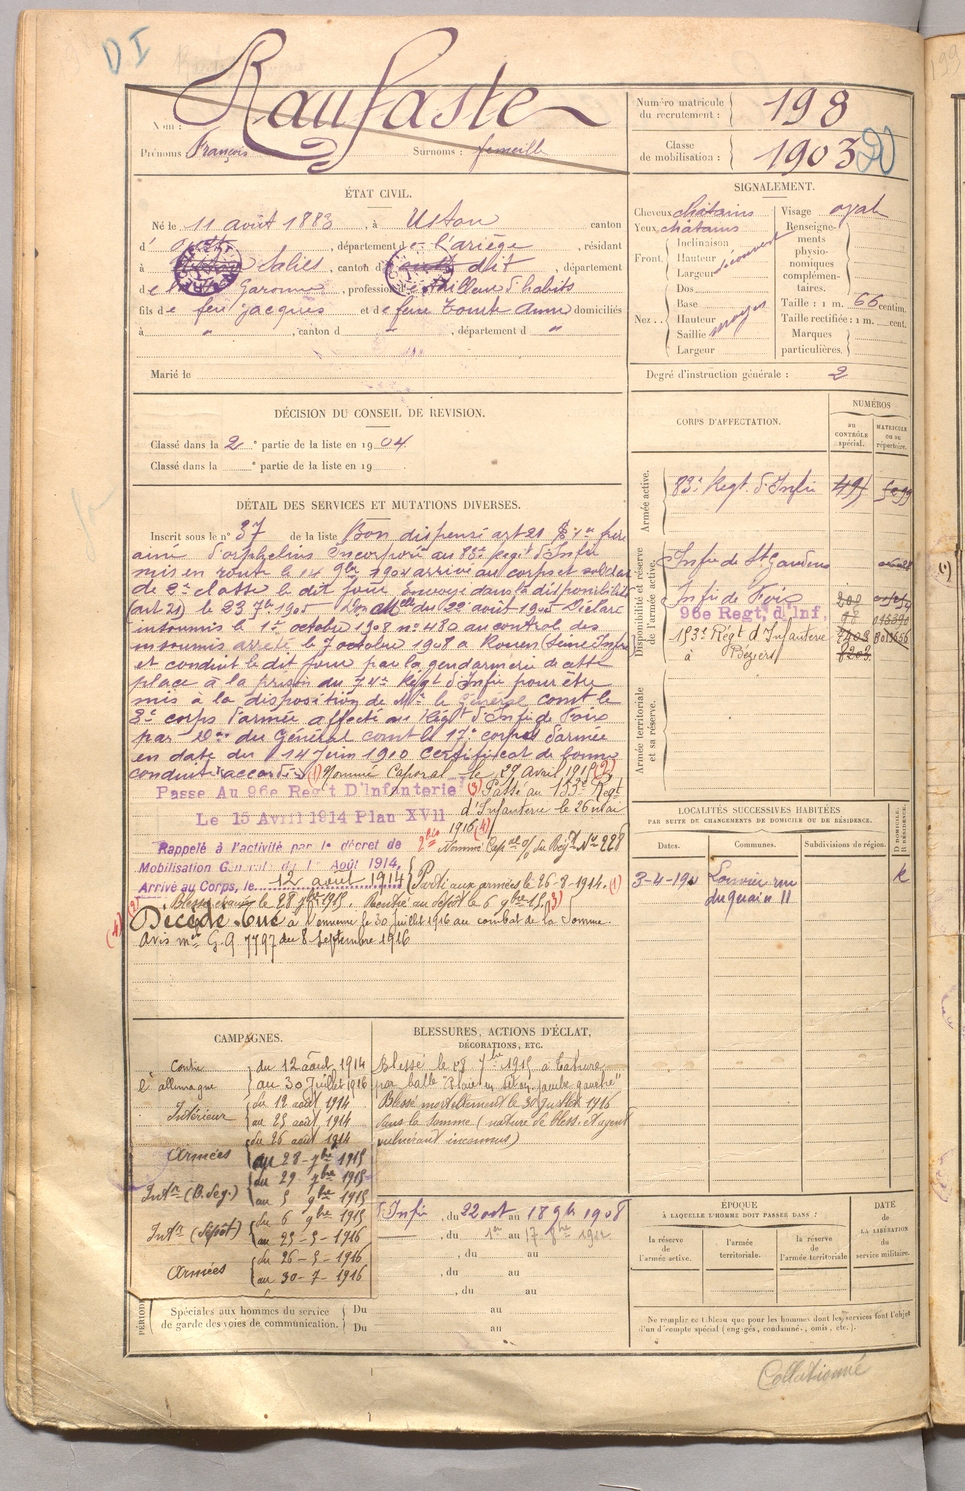 DI
Nom : Raufaste
Prénoms : François Surnoms :
Numéro matricule du recrutement : 198
Classe de mobilisation : 1903
ÉTAT CIVIL.
Né le 11 août 1883, à Uston canton
d' , département de l'ariège, résidant
à Salies, canton d dit, département
de Garonne, profession d tailleur d'habits
fils de feu jacques et de feue Anne domiciliés
à " , canton d " , département d "
Marié le
SIGNALEMENT.
Cheveux châtains Visage oval
Yeux châtains
Front. Inclinaison Hauteur Largeur découvert
Nez . . Dos Base Hauteur Saillie Largeur moyen
Renseignements physionomiques complémentaires.
Taille : 1 m. 66 centim.
Taille rectifiée : 1 m. cent.
Marques particulières.
Degré d'instruction générale : 2
DÉCISION DU CONSEIL DE REVISION.
Classé dans la 2 e partie de la liste en 1904
Classé dans la e partie de la liste en 19
CORPS D'AFFECTATION.
NUMÉROS
AU CONTRÔLE spécial.
MATRICULE OU AU répertoire.
Armée active.
83e Regt. d'Infie
Disponibilité et réserve de l'armée active.
Infie de St Gaudens
Infie de Foix 200
96e Regt. d'Inf.
153e Régt d'Infanterie
à Béziers 8203
Armée territoriale et sa réserve.
DÉTAIL DES SERVICES ET MUTATIONS DIVERSES.
Inscrit sous le n° 37 de la liste Bon dispensé art 21
ainé d'orphelins Incorporé au 83e Régt d'Infie
mis en route le 14 9bre 1904 arrivé au corps et soldat
de 2e classe le dit jour envoyé dans la disponibilité
(art 21) le 23 7bre 1905 du 22 août 1905 Déclaré
insoumis le 1er octobre 1908 no 480 au control des
insoumis arrêté le 7 octobre 1908 à Rouen (Seine Infre
et conduit le dit jour par la gendarmerie de cette
place à la prison du 74e Régt d'Infie pour être
mis à la disposition de Mr le Général comt le
corps d'armée affecté au Régt d'Infie de Foix
par Don du Général comt le 17e corps d'armée
en date du 14 Juin 1910 Certificat de bonne
conduite accordé (1) Nommé Caporal le 29 Avril 1915 (2)
Passe Au 96e Reg't D'Infanterie (3) Passé au 153e Regt
d'Infanterie le 26 mai
Le 15 Avril 1914 Plan XVII
1916 (4)
Rappelé à l'activité par le décret de
Mobilisation Générale du 1er Août 1914,
Arrivé au Corps, le 12 août 1914 Parti aux armées le 26-8-1914. (1)
Blessé évacué le 28 7bre 1915. Rentré au dépôt le 6 9bre 1915 (3)
Décédé Tué à l'ennemi le 30 juillet 1916 au combat de la Somme.
Avis mel G.Q 7797 du 8 Septembre 1916
LOCALITÉS SUCCESSIVES HABITÉES
PAR SUITE DE CHANGEMENTS DE DOMICILE OU DE RÉSIDENCE.
Dates. Communes. Subdivisions de région. D DOMICILE. R RÉSIDENCE.
Louvier rue
CAMPAGNES.
Contre l'allemagne du 12 août 1914
au 30 Juillet 1916
Intérieur du 12 août 1914
au 25 août 1914
Armées du 26 août 1914
au 28 - 7bre 1915
Intr (B. Seg.) du 29 7bre 1915
au 5 9bre 1915
Intr (dépôt) du 6 9bre 1915
au 25 - 5 - 1916
Armées du 26 - 5 - 1916
au 30 - 7 - 1916
BLESSURES, ACTIONS D'ÉCLAT,
DÉCORATIONS, ETC.
Blessé le 28 7bre 1915 à Tahure
par balle "Plaie en séton jambe gauche"
Blessé mortellement le 30 Juillet 1916
dans la Somme (nature de bless. et agent
vulnérant inconnus)
Infie, du 22 oct au 17 9b 1908
, du 1er au 17 1912
, du au
, du au
, du au
PÉRIODES
Spéciales aux hommes du service
de garde des voies de communication.
Du au
Du au
ÉPOQUE
À LAQUELLE L'HOMME DOIT PASSER DANS :
la réserve de l'armée active.
l'armée territoriale.
la réserve de l'armée territoriale
DATE de LA LIBÉRATION du service militaire.
Ne remplir ce tableau que pour les hommes dont les services font l'objet
d'un décompte spécial (engagés, condamnés, omis, etc.).
Collationné